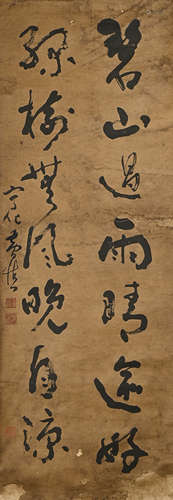 碧山過雨晴逾好
綠樹無風晚自涼
寧化黃慎